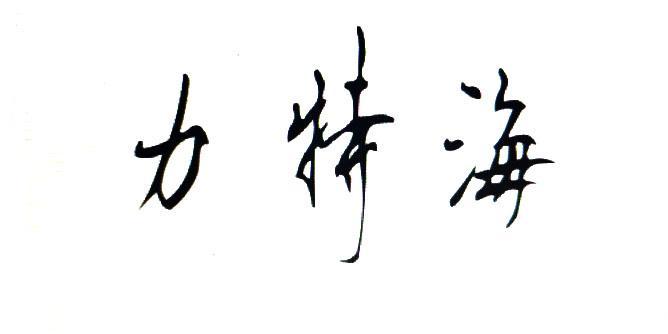 海特力